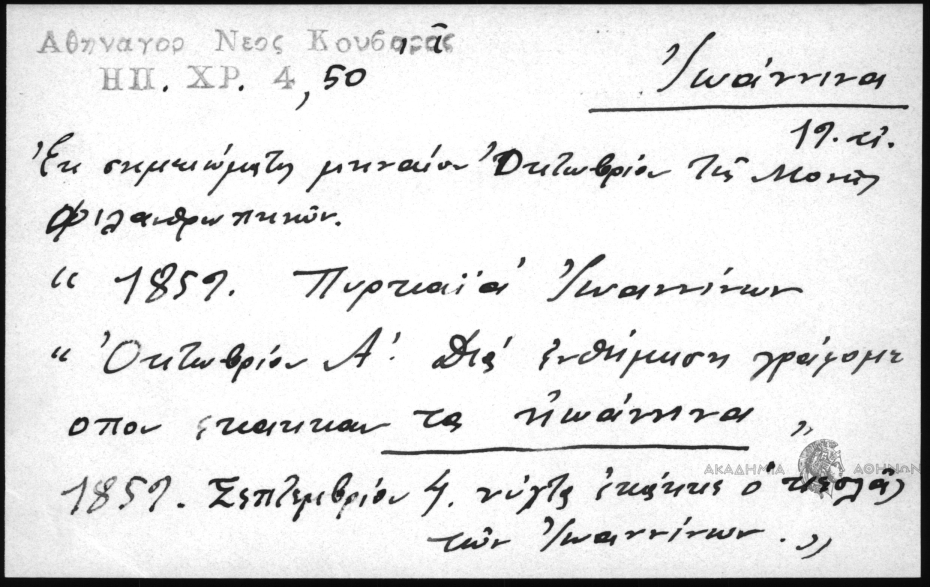 Αθηναγορ Νεος Κουβαρας, ῖ
ΗΠ. ΧΡ. 4, 50
Ἰωάννινα
19. αἰ.
Ἐκ σημειώματος μηναίου Ὀκτωβρίου τῆς Μονῆς
Φιλανθρωπηνῶν.
“ 1859. Πυρκαϊά Ἰωαννίνων
“ Ὀκτωβρίου Α΄. Διά ἐνθύμηση γράφομε
οπου εκαηκαν τα Ἠωάννινα „
1859. Σεπτεμβρίου 4. νύχτα ἐκάηκε ο
τῶν Ἰωαννίνων. „
ΑΚΑΔΗΜΙΑ ΑΘΗΝΩΝ